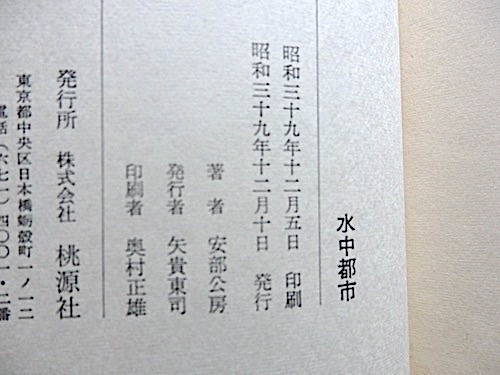 水中都市
昭和三十九年十二月五日 印刷
昭和三十九年十二月十日 発行
著者 安部公房
発行者 矢貴東司
印刷者 奥村正雄
発行所 株式会社 桃源社
東京都中央区日本橋蛎殻町一ノ一二
電話(六七一)四〇〇一・二番